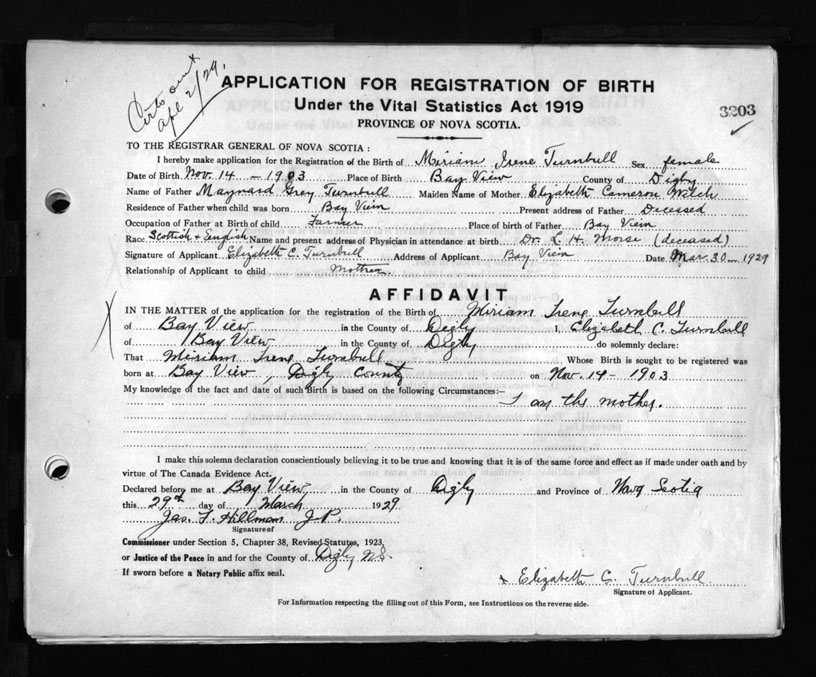 Certs out
Apl 2/29
APPLICATION FOR REGISTRATION OF BIRTH
Under the Vital Statistics Act 1919
PROVINCE OF NOVA SCOTIA.
3203
TO THE REGISTRAR GENERAL OF NOVA SCOTIA :
I hereby make application for the Registration of the Birth of Miriam Irene Turnbull Sex female
Date of Birth Nov. 14 - 1903 Place of Birth Bay View County of Digby
Name of Father Maynard Grey Turnbull Maiden Name of Mother Elizabeth Cameron Welch
Residence of Father when child was born Bay View Present address of Father Deceased
Occupation of Father at Birth of child Farmer Place of birth of Father Bay View
Race Scottish & English Name and present address of Physician in attendance at birth Dr. L. H. Morse (deceased)
Signature of Applicant Elizabeth C. Turnbull Address of Applicant Bay View Date Mar. 30 - 1929
Relationship of Applicant to child Mother.
AFFIDAVIT
IN THE MATTER of the application for the registration of the Birth of Miriam Irene Turnbull
of Bay View in the County of Digby I, Elizabeth C. Turnbull
of Bay View in the County of Digby do solemnly declare:
That Miriam Irene Turnbull Whose Birth is sought to be registered was
born at Bay View, Digby County on Nov. 14 - 1903
My knowledge of the fact and date of such Birth is based on the following Circumstances:—
I am the mother.
I make this solemn declaration conscientiously believing it to be true and knowing that it is of the same force and effect as if made under oath and by
virtue of The Canada Evidence Act.
Declared before me at Bay View in the County of Digby and Province of Nova Scotia
this 29th day of March 1929.
Jas. F. Hillman J.P.
Signature of
Commissioner under Section 5, Chapter 38, Revised Statutes, 1923,
or Justice of the Peace in and for the County of Digby N.S.
If sworn before a Notary Public affix seal.
x Elizabeth C. Turnbull
Signature of Applicant.
For Information respecting the filling out of this Form, see Instructions on the reverse side.